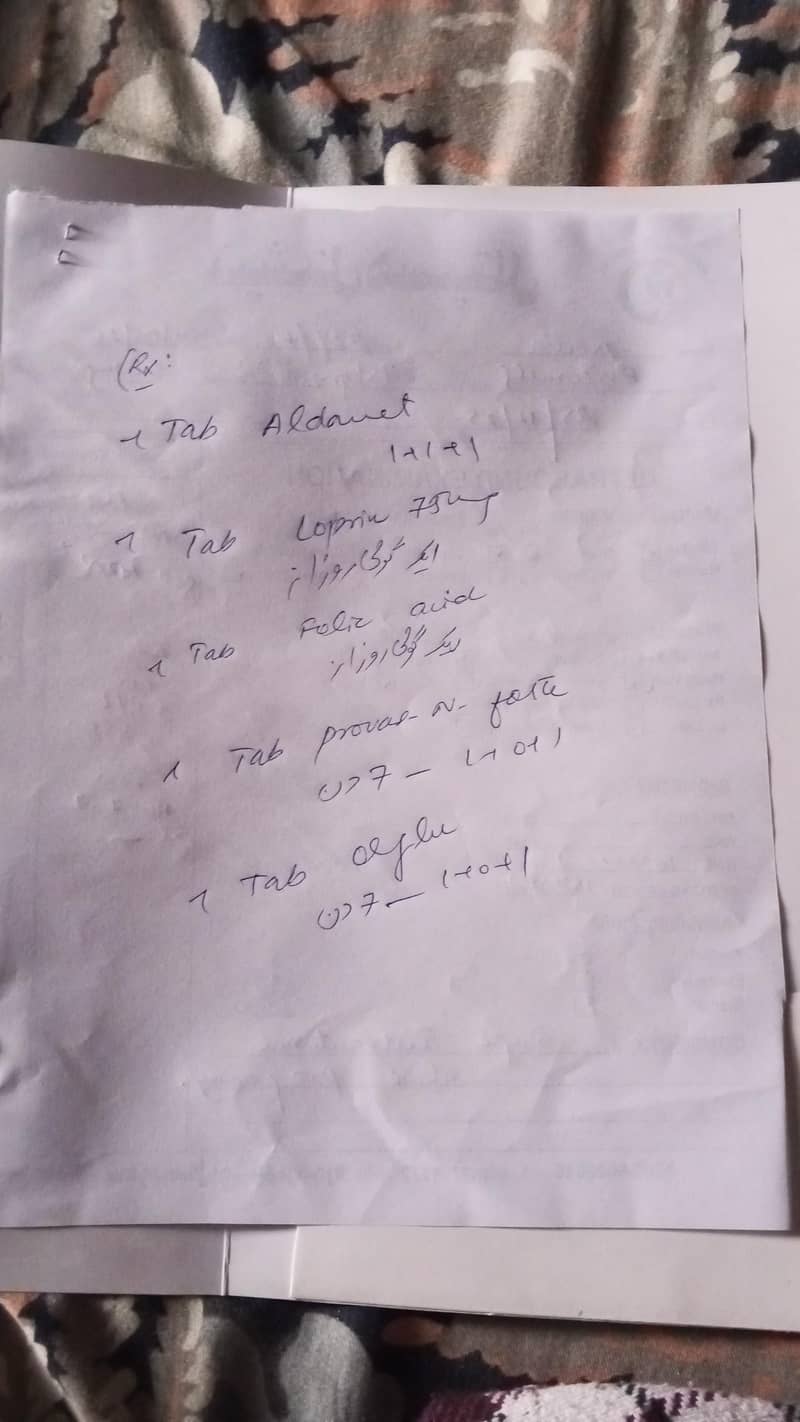 Rx:
Tab Aldomet
1+1+1
Tab Loprin 75mg
ایک گولی روزانہ
Tab Folic acid
ایک گولی روزانہ
Tab provas-N-forte
7 دن — 1+0+1
Tab
7 دن — 1+0+1